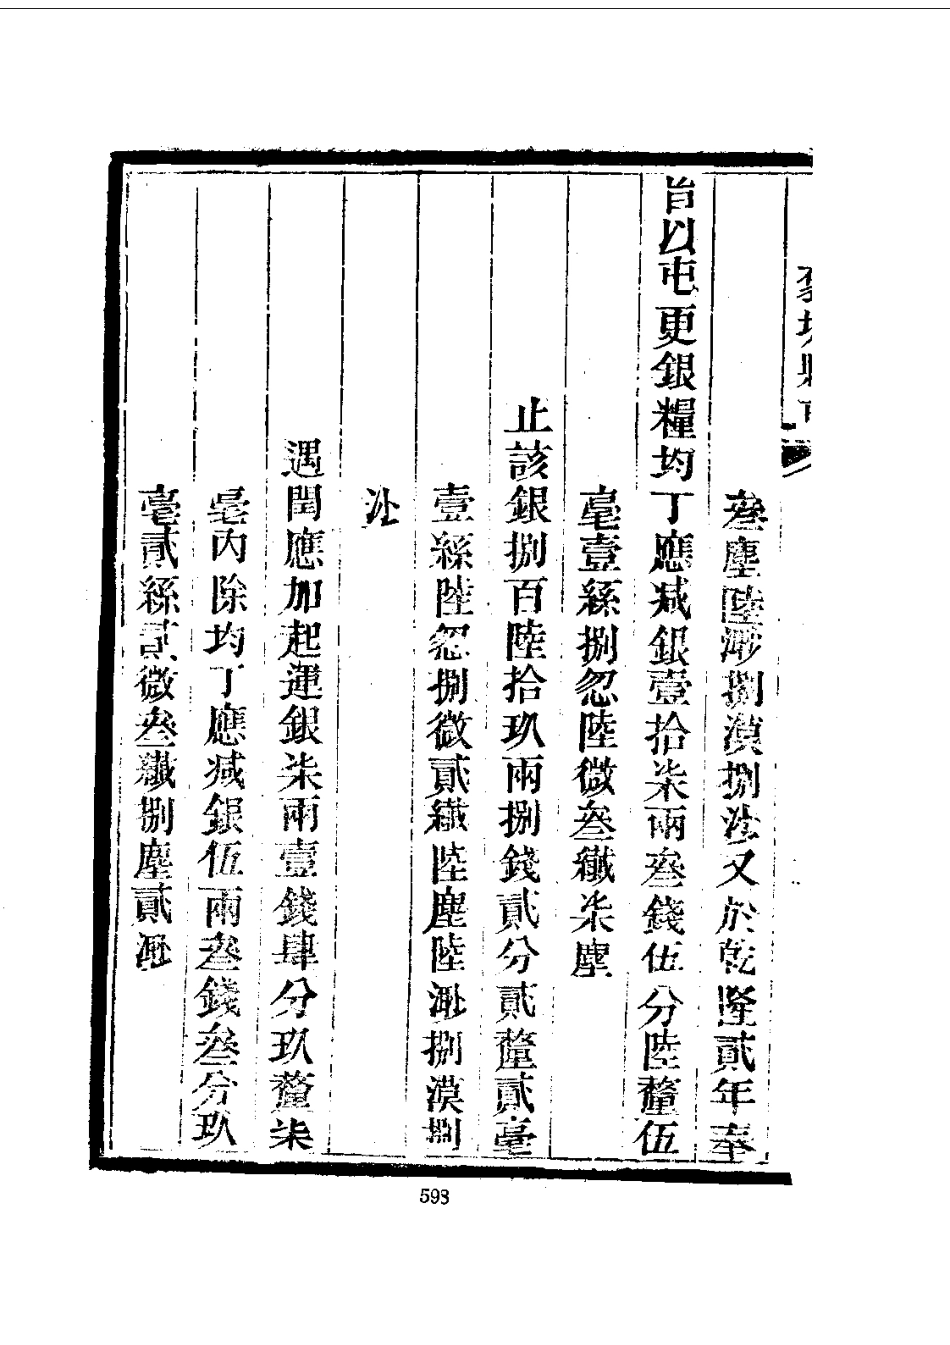 叁塵陸渺捌漠捌沙又於乾隆貳年奉
旨以屯更銀糧均丁應减銀壹拾柒兩叁錢伍分陸釐伍
毫壹絲捌忽陸微叁纖柒塵
止該銀捌百陸拾玖兩捌錢貳分貳釐貳毫
壹絲陸忽捌微貳纖陸塵陸渺捌漠捌
沙
遇閏應加起運銀柒兩壹錢肆分玖釐柒
毫內除均丁應减銀伍兩叁錢叁分玖
毫貳絲貳微叁纖捌塵貳渺
593